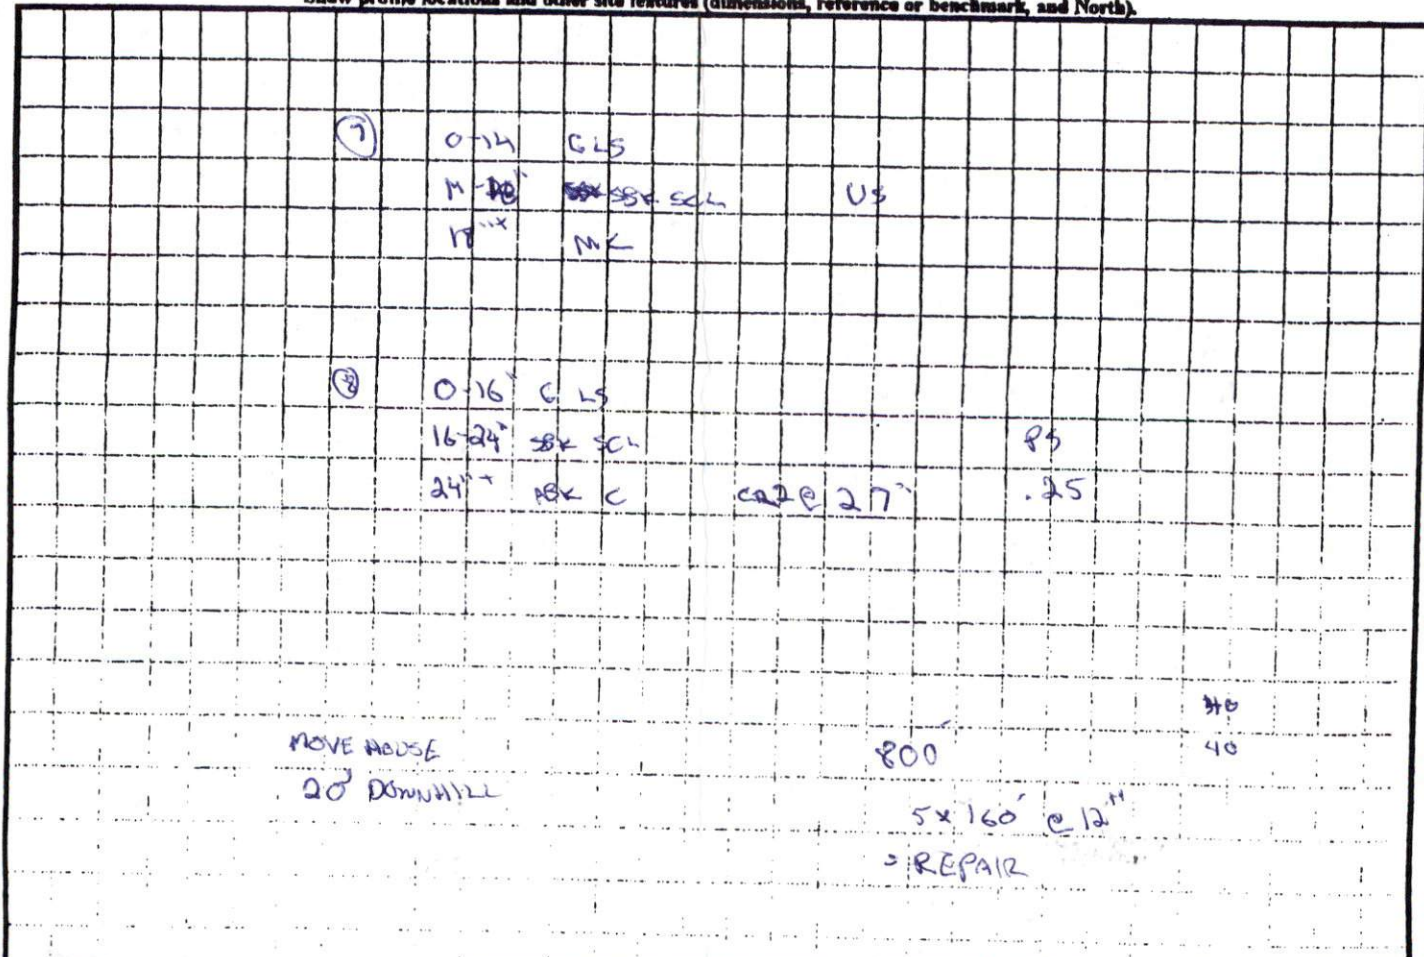 Show profile locations and other site features (dimensions, reference or benchmark, and North).
7 0-14 G LS
SBK SCL US
18"+
8 0-16" G LS
16-24" SBK SCL PS
24"+ ABK C CR2 @ 27" .25
40
MOVE HOUSE 800' 40
20' DOWNHILL
5 x 160' @ 12"
= REPAIR